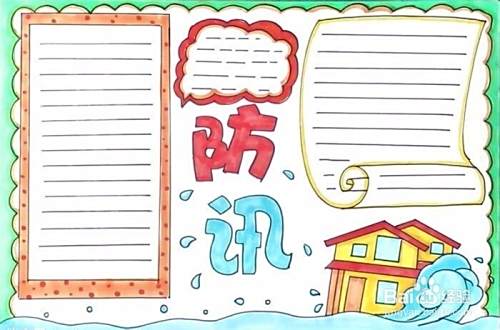 防
讯
Baidu 经验